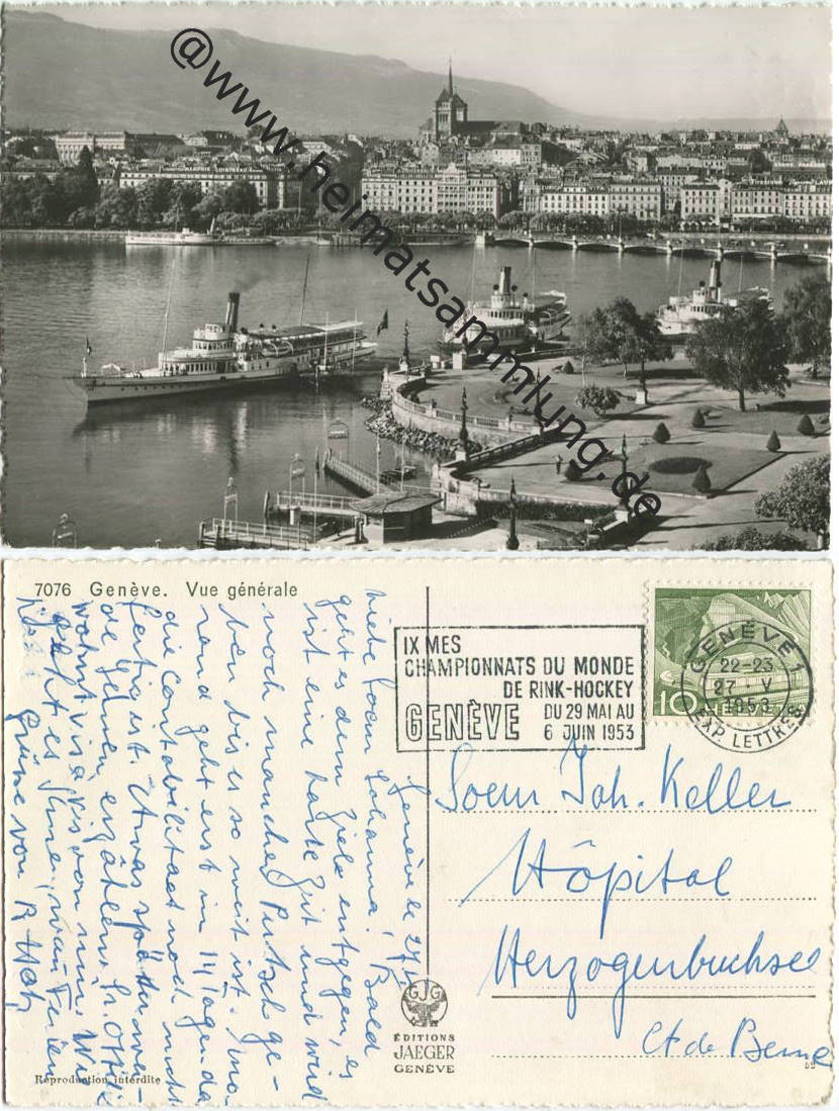 @www.heimatsammlung.de
7076 Genève. Vue générale
IX MES
CHAMPIONNATS DU MONDE
DE RINK-HOCKEY
GENÈVE
DU 29 MAI AU
6 JUIN 1953
GENÈVE 1
22-23
27·V
1953
EXP. LETTRES
10 HELVETIA
Genève le 27.
liebe Soeur Johanna! Bald
geht es dem Ziele entgegen, es
ist eine harte Zeit und wird
noch manchen Putsch ge-
ben bis es so weit ist.
rand geht erst in 14 Tagen da
die Contabilitaet noch nicht
fertig ist. Etwas später
de Ihnen erzählen. Sr. Ottilie
wohnt vis à vis von mir. Wie
geht es Ihnen, wann Ferien
Grüsse von R.
Soeur Joh. Keller
Hôpital
Herzogenbuchsee
Ct de Berne
GJG
ÉDITIONS
JAEGER
GENÈVE
Reproduction interdite